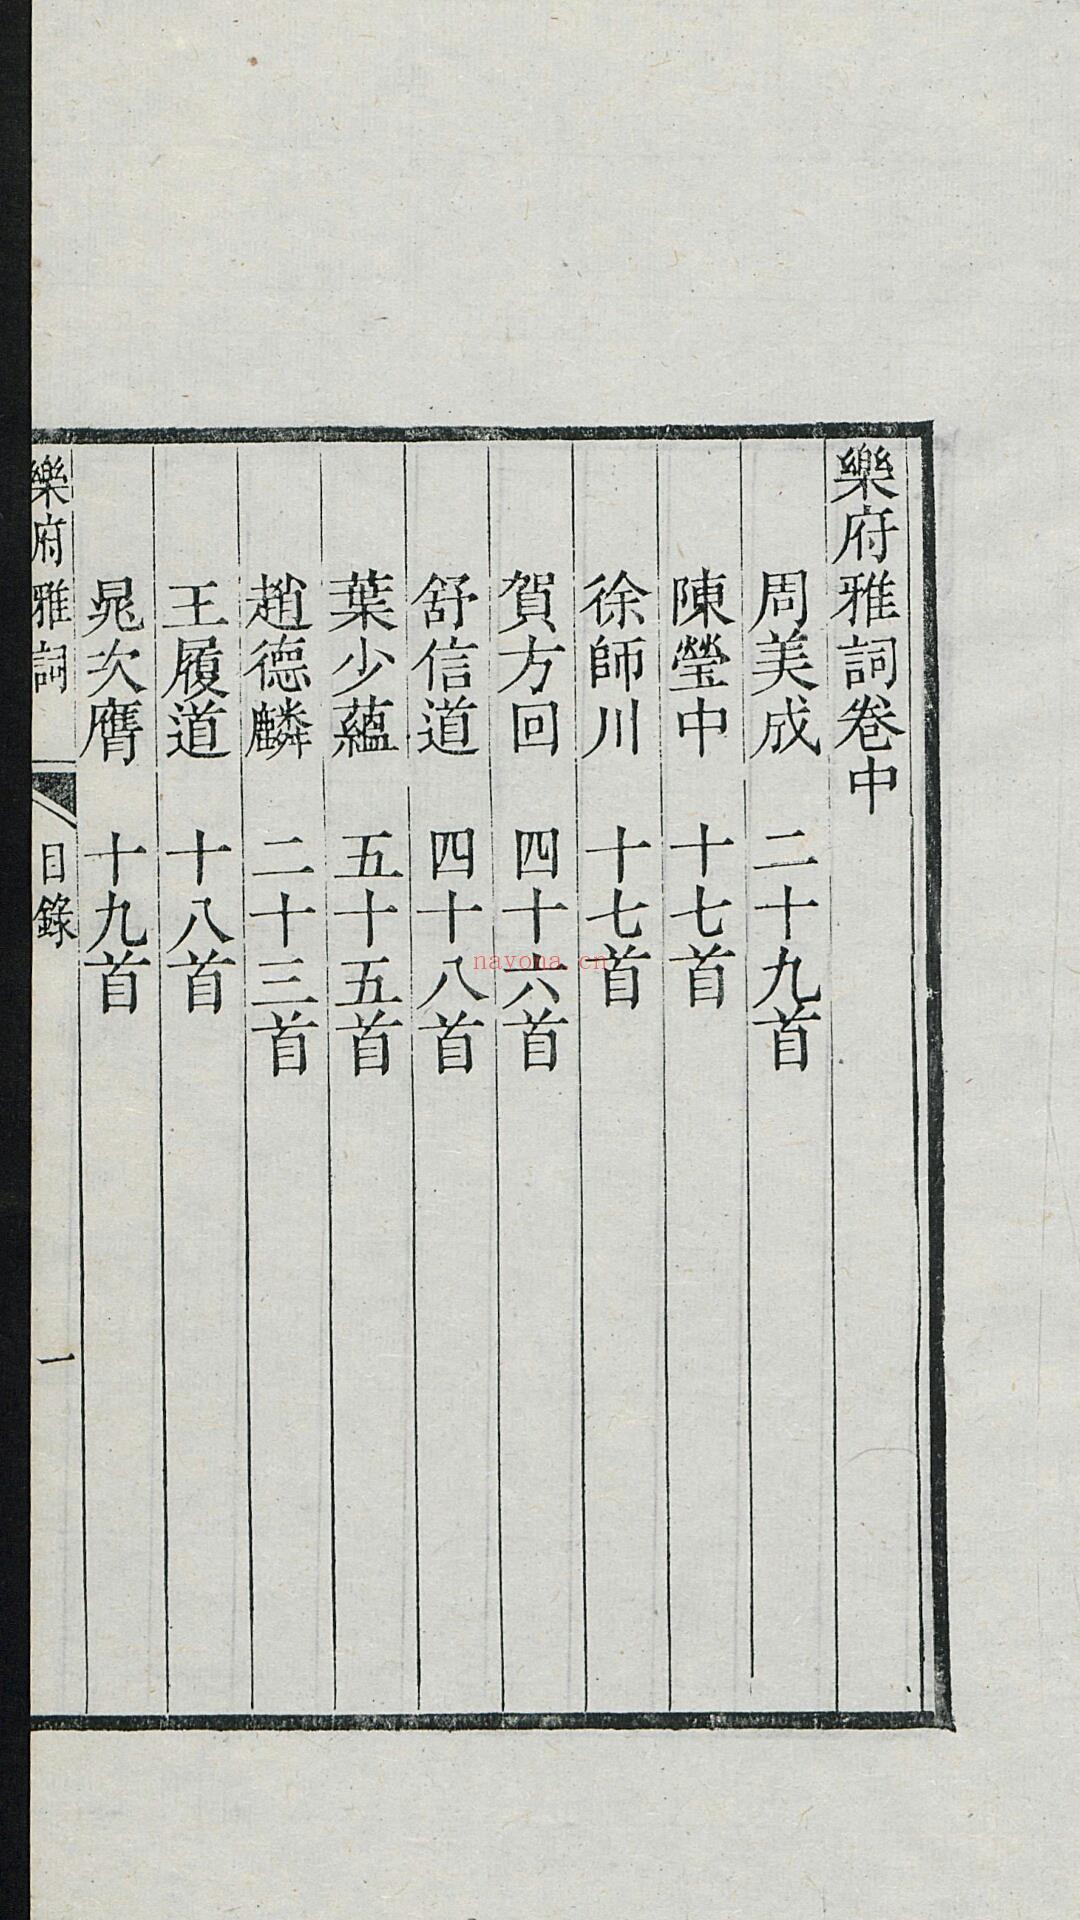 樂府雅詞卷中
周美成 二十九首
陳瑩中 十七首
徐師川 十七首
賀方回 四十六首
舒信道 四十八首
葉少蘊 五十五首
趙德麟 二十三首
王履道 十八首
晁次膺 十九首
樂府雅詞 目錄 一
nayona.cn